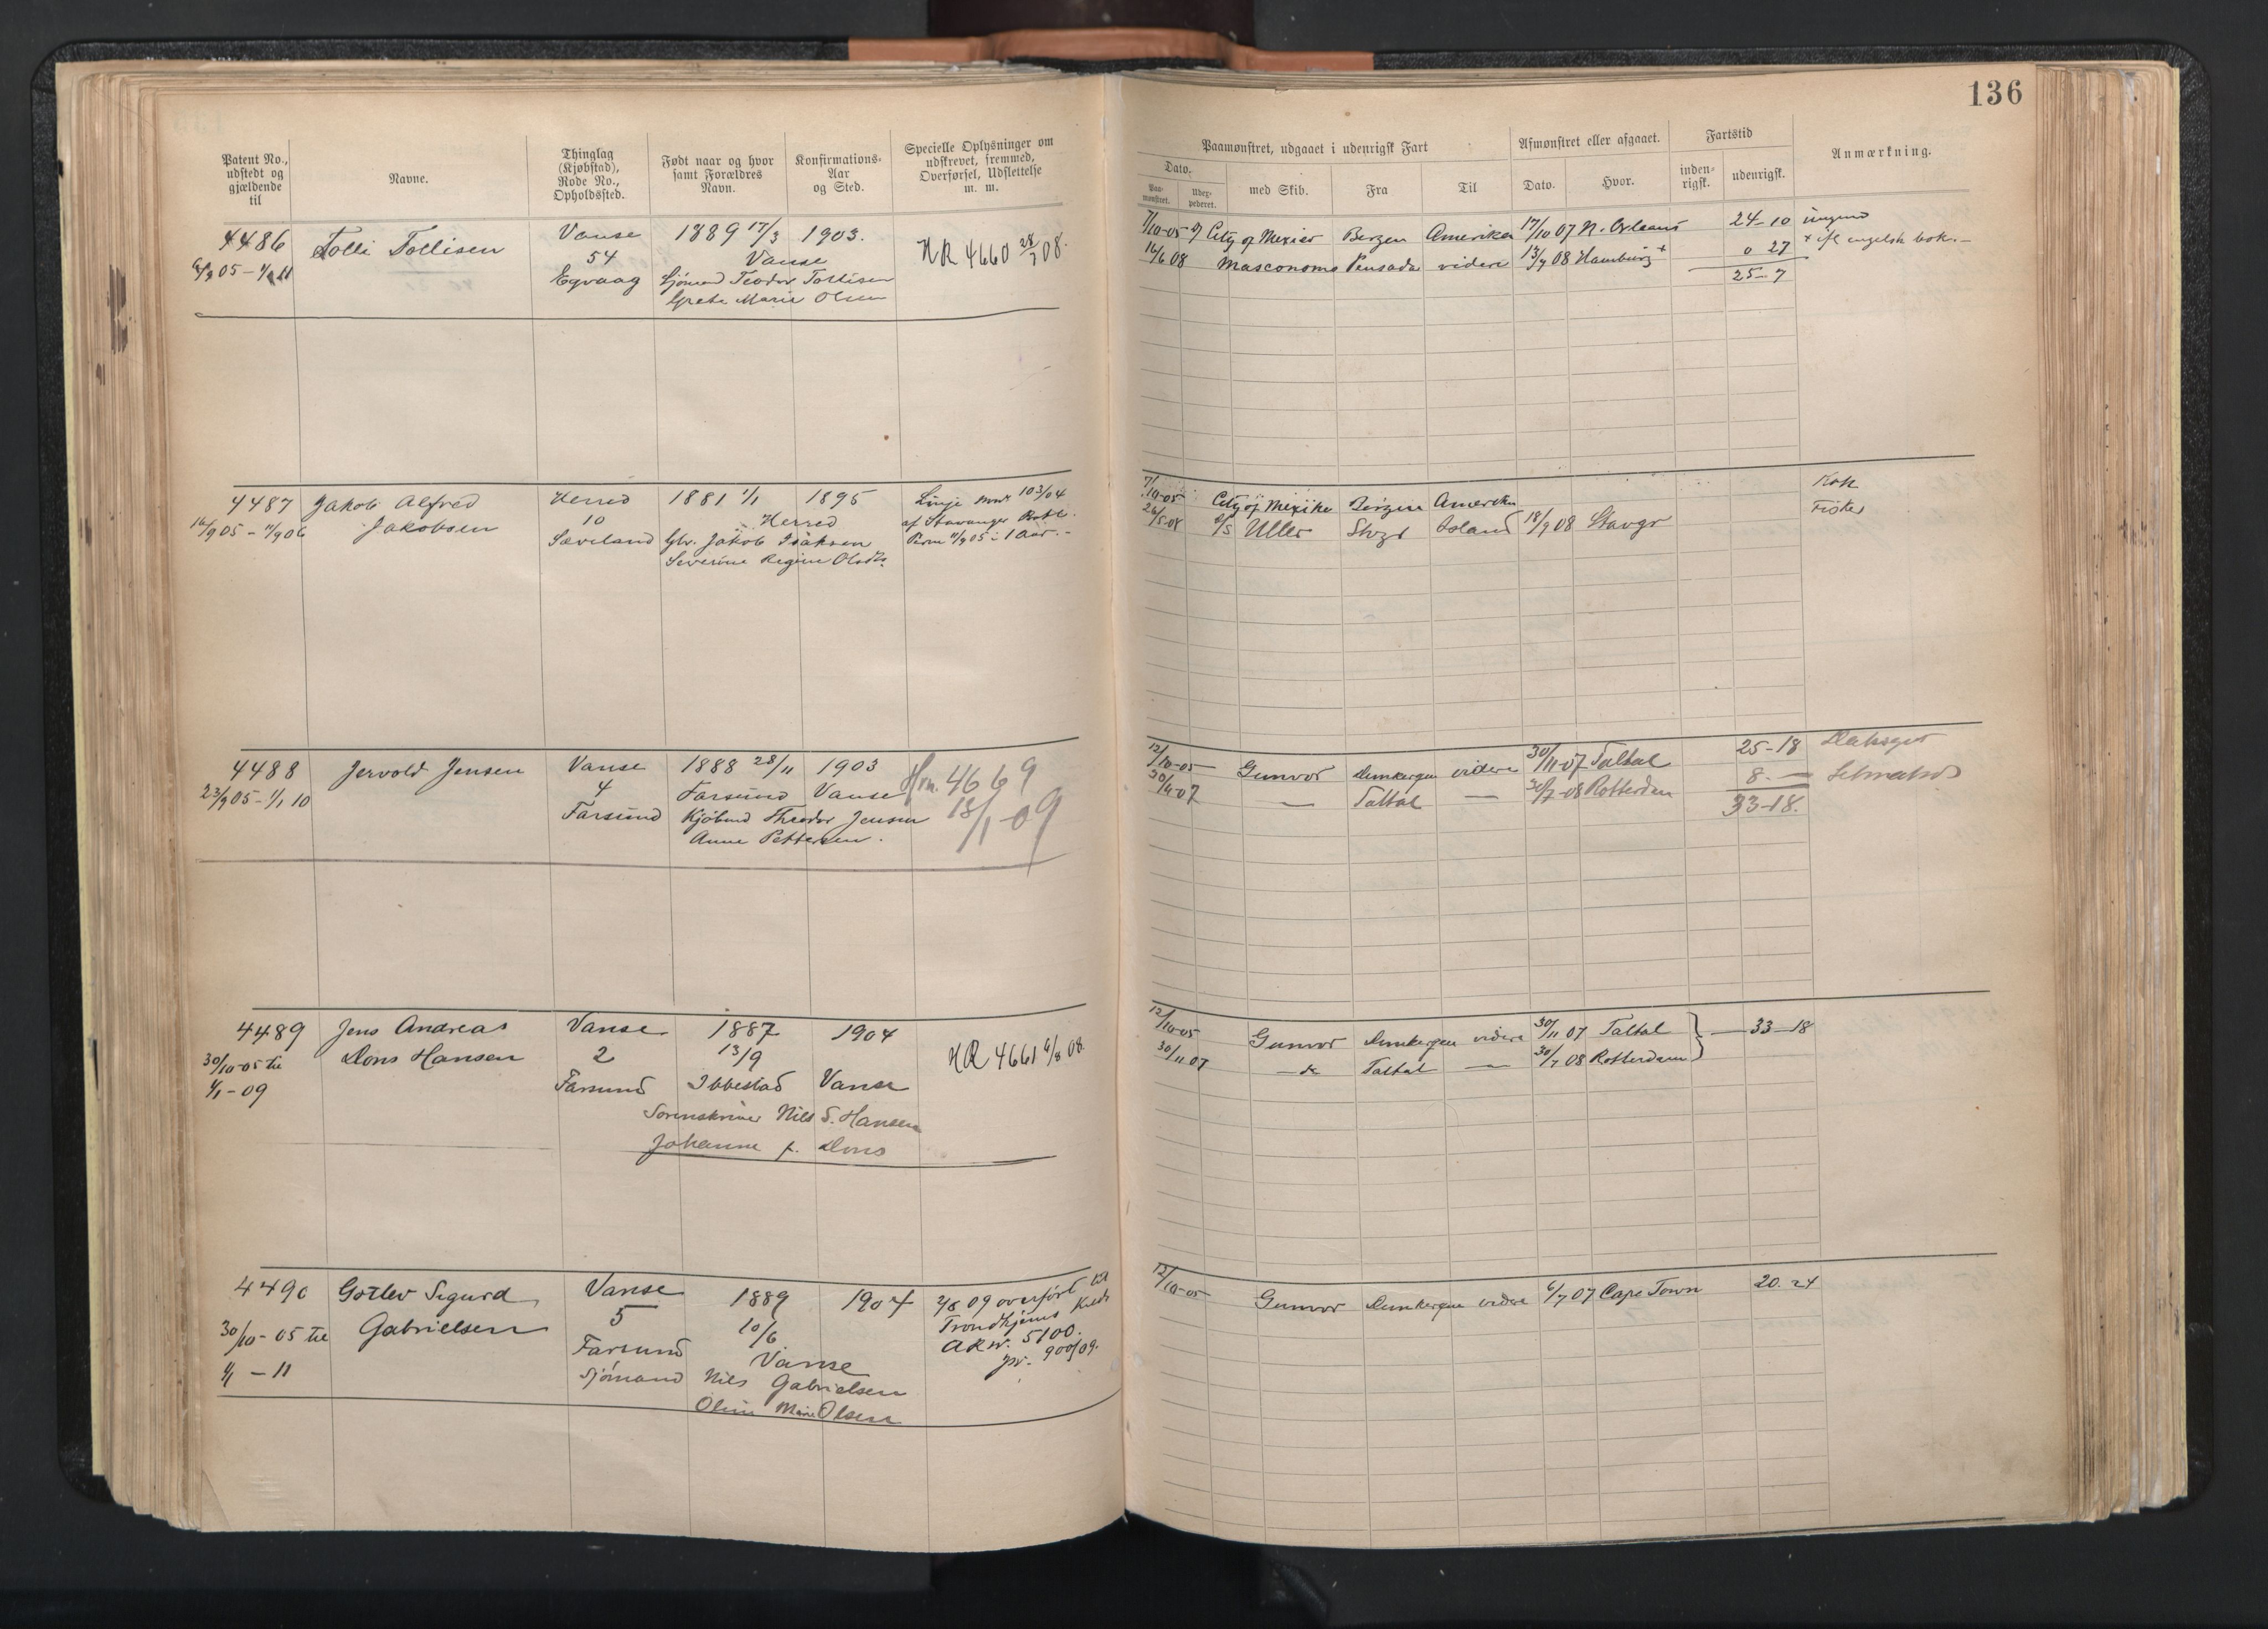 136
Patent No., udstedt og gjældende til
Navne.
Thinglag (Kjøbstad), Rode No., Opholdssted.
Født naar og hvor samt Forældres Navn.
Konfirmations-Aar og Sted.
Specielle Oplysninger om udskrevet, fremmed, Overførsel, Udslettelse m. m.
Paamønstret, udgaaet i udenrigsk Fart
Dato.
Paa-mønstret.
Udex-pederet.
med Skib.
Fra
Til
Afmønstret eller afgaaet.
Dato.
Hvor.
Fartstid
inden-rigsk.
udenrigsk.
Anmærkning.
4486 Tolli Tollisen Vanse 1889 17/3 1903.
54 Vanse HR 4660 28/7 08.
Egvaag Sjømand Teodor Tollisen
Grete Marie Olsen
7/10-05 City of Mexico Bergen Amerika 17/10 07 N. Orleans 24-10 ungmd
16/6 08 Masconomo Pensacola videre 13/7 08 Hamburg + 0 27 + ifl engelsk bok.-
25-7
4487 Jakob Alfred Herred 1881 1/1 1895 Linje mnr 103/04
16/9 05 - 11/9 06 Jakobsen 10 Herred af Stavanger
Sæveland Gbr. Jakob Isaksen Perm 11/9 05 - 1 Aar.-
Severine Regine Olsdtr.
7/10-05 City of Mexiko Bergen Amerika Kok
26/5-08 s/s Uller Stvgr Island 18/9 08 Stavgr Fisker
4488 Jervold Jensen Vanse 1888 28/11 1903 Hm. 4669
23/9 05 - 1/1 10 4 Farsund Vanse 18/1-09
Farsund Kjøbmd Theodor Jensen
Anne Pettersen.
12/10-05 Gunvor Dunkerque videre 30/11-07 Taltal 25-18 Dæksgut
30/11-07 — Taltal — 30/7-08 Rotterdam 8. —
33-18.
4489 Jens Andreas Vanse 1887 1904
30/10-05 til Dons Hansen 2 13/9 HR 4661 6/8 08.
1/1 - 09 Farsund Ibbestad Vanse
Sorenskriver Nils S. Hansen
Johanne f. Dons
12/10-05 Gunvor Dunkerque videre 30/11 07 Taltal } — 33-18
30/11 07 — do Taltal — 30/7 08 Rotterdam
4490 Gotlev Sigurd Vanse 1889 1904 2/8 09 overført til
30/10-05 til Gabrielsen 5 10/6 Trondhjems Kreds
1/1 - 11 Farsund Vanse AR nr. 5100.
Sjømand Nils Gabrielsen jnr. 900/09.
Oline Marie Olsen
12/10-05 Gunvor Dunkerque videre 6/7 07 Cape Town 20. 24